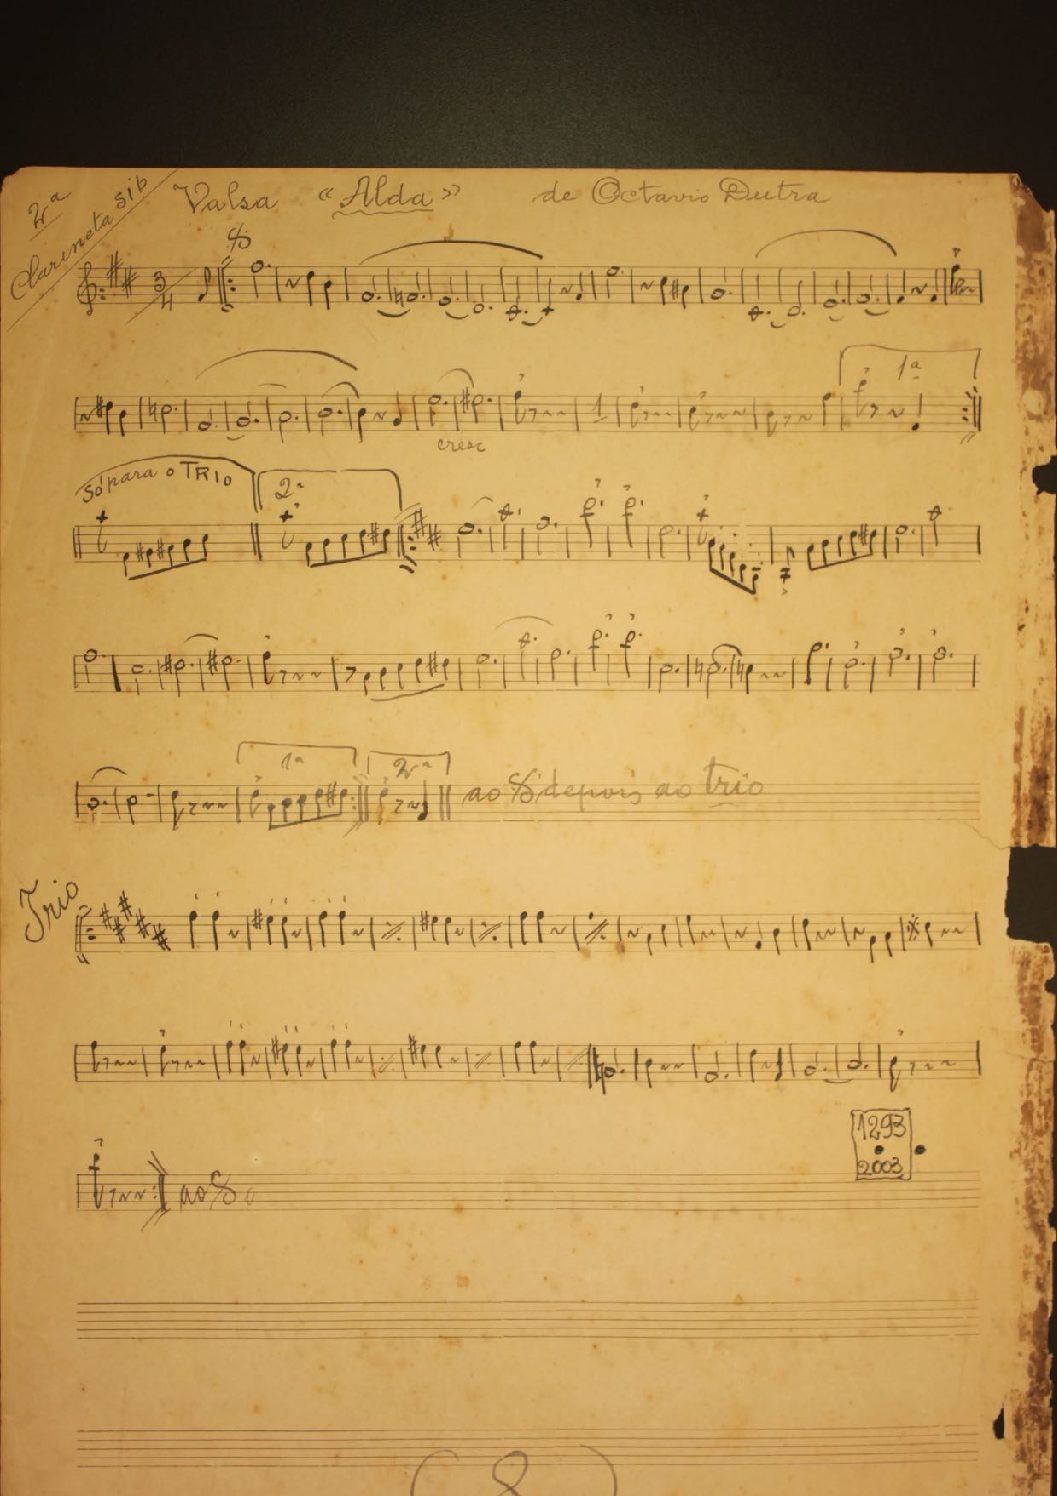 2ª
Clarineta sib
Valsa "Alda" de Octavio Dutra
3
4
1ª
1
cresc
Só para o TRIO
2ª
1ª
2ª
ao 𝄋 depois ao trio
Trio
1293
2003
ao 𝄋
(8)